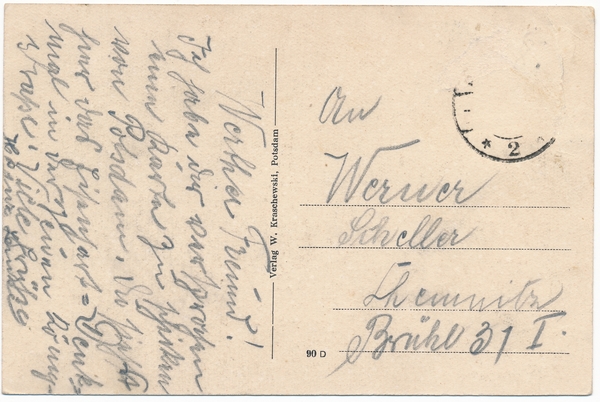 Werther Freund!
Ich habe dir versprochen
eine Karte zu schicken
von Potsdam. Du siehst
hier das Denk-
mal in der
straße. Viele Grüße
Verlag W. Kraschewski, Potsdam
An
Werner
Scheller
Chemnitz
Brühl 31 I.
90 D
* 2